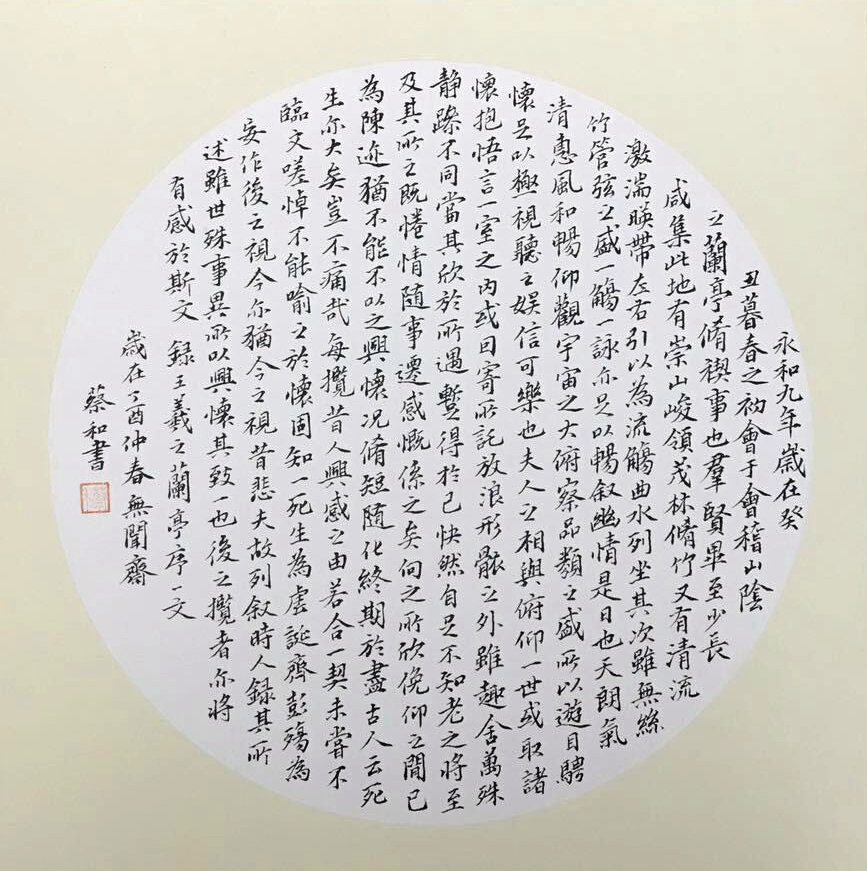 永和九年歲在癸
丑暮春之初會于會稽山陰
之蘭亭脩禊事也羣賢畢至少長
咸集此地有崇山峻領茂林脩竹又有清流
激湍暎帶左右引以為流觴曲水列坐其次雖無絲
竹管弦之盛一觴一詠亦足以暢叙幽情是日也天朗氣
清惠風和暢仰觀宇宙之大俯察品類之盛所以遊目騁
懷足以極視聽之娛信可樂也夫人之相與俯仰一世或取諸
懷抱悟言一室之內或因寄所託放浪形骸之外雖趣舍萬殊
靜躁不同當其欣於所遇暫得於己快然自足不知老之將至
及其所之既惓情隨事遷感慨係之矣向之所欣俛仰之閒已
為陳迹猶不能不以之興懷况脩短随化終期於盡古人云死
生亦大矣豈不痛哉每攬昔人興感之由若合一契未嘗不
臨文嗟悼不能喻之於懷固知一死生為虛誕齊彭殤為
妄作後之視今亦猶今之視昔悲夫故列叙時人録其所
述雖世殊事異所以興懷其致一也後之攬者亦將
有感於斯文 録王羲之蘭亭序一文
歲在丁酉仲春無聞齋
蔡和書